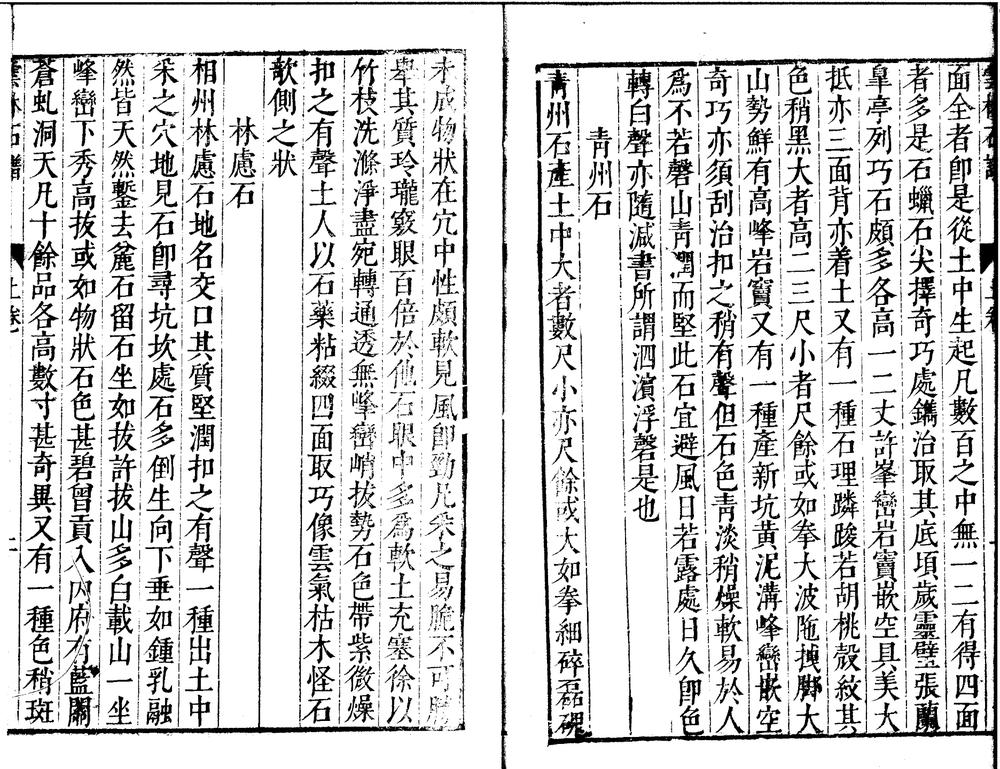 雲林石譜 上卷
面全者卽是從土中生起凡數百之中無一二有得四面
者多是石蠟石尖擇奇巧處鐫治取其底頃歲靈璧張蘭
皐亭列巧石頗多各高一二丈許峯巒岩竇嵌空具美大
抵亦三面背亦着土又有一種石理嶙踆若胡桃殼紋其
色稍黑大者高二三尺小者尺餘或如拳大波陁拽腳大
山勢鮮有高峰岩竇又有一種產新坑黃泥溝峰巒嵌空
奇巧亦須刮治扣之稍有聲但石色青淡稍燥軟易於人
爲不若磬山青潤而堅此石宜避風日若露處日久卽色
轉白聲亦隨減書所謂泗濱浮磬是也
青州石
青州石產土中大者數尺小亦尺餘或大如拳細碎磊磈
未成物狀在穴中性頗軟見風卽勁凡采之易脆不可勝
舉其質玲瓏竅眼百倍於他石眼中多爲軟土充塞徐以
竹枝洗滌淨盡宛轉通透無峰巒峭拔勢石色帶紫微燥
扣之有聲土人以石藥粘綴四面取巧像雲氣枯木怪石
欹側之狀
林慮石
相州林慮石地名交口其質堅潤扣之有聲一種出土中
采之穴地見石卽尋坑坎處石多倒生向下垂如鍾乳融
然皆天然鏨去麄石留石坐如拔許拔山多白載山一坐
峰巒下秀高拔或如物狀石色甚碧曾貢入內府有藍關
蒼虬洞天凡十餘品各高數寸甚奇異又有一種色稍斑
雲林石譜 上卷 二